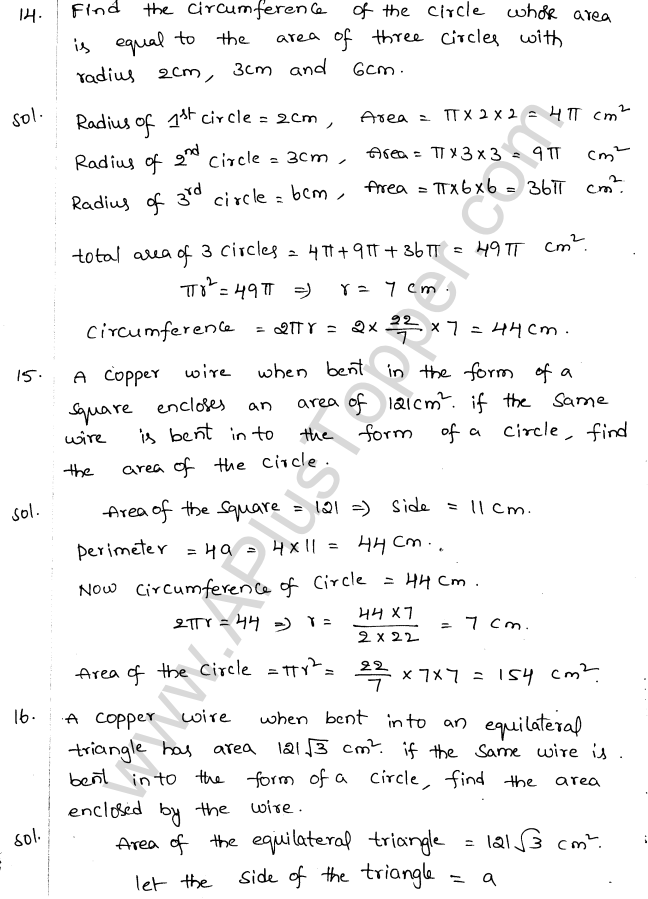 14. Find the circumference of the circle whose area
is equal to the area of three circles with
radius 2cm, 3cm and 6cm.
Sol. Radius of 1st circle = 2cm, Area = π×2×2 = 4π cm²
Radius of 2nd circle = 3cm, Area = π×3×3 = 9π cm²
Radius of 3rd circle = 6cm, Area = π×6×6 = 36π cm².
total area of 3 circles = 4π+9π+36π = 49π cm².
πr² = 49π ⇒ r = 7 cm.
Circumference = 2πr = 2 × 22/7 × 7 = 44 cm.
15. A copper wire when bent in the form of a
square encloses an area of 121cm². if the same
wire is bent in to the form of a circle, find
the area of the circle.
Sol. Area of the square = 121 ⇒ Side = 11 cm.
Perimeter = 4a = 4×11 = 44 cm.
Now Circumference of Circle = 44 cm.
2πr = 44 ⇒ r = 44 × 7 / 2 × 22 = 7 cm.
Area of the Circle = πr² = 22/7 × 7×7 = 154 cm².
16. A copper wire when bent into an equilateral
triangle has area 121√3 cm². if the same wire is
bent in to the form of a circle, find the area
enclosed by the wire.
Sol. Area of the equilateral triangle = 121√3 cm².
let the side of the triangle = a
www.APlusTopper.com